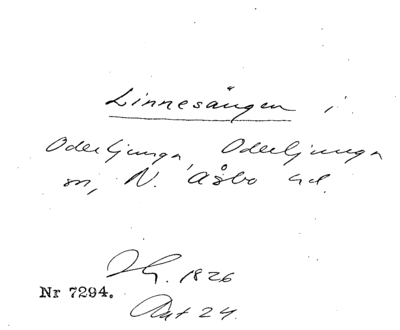 Linnesängen i
Oderljunga, Oderljunga
sn, N. Åsbo hd.
Nr 7294. 1826
Akt 24.